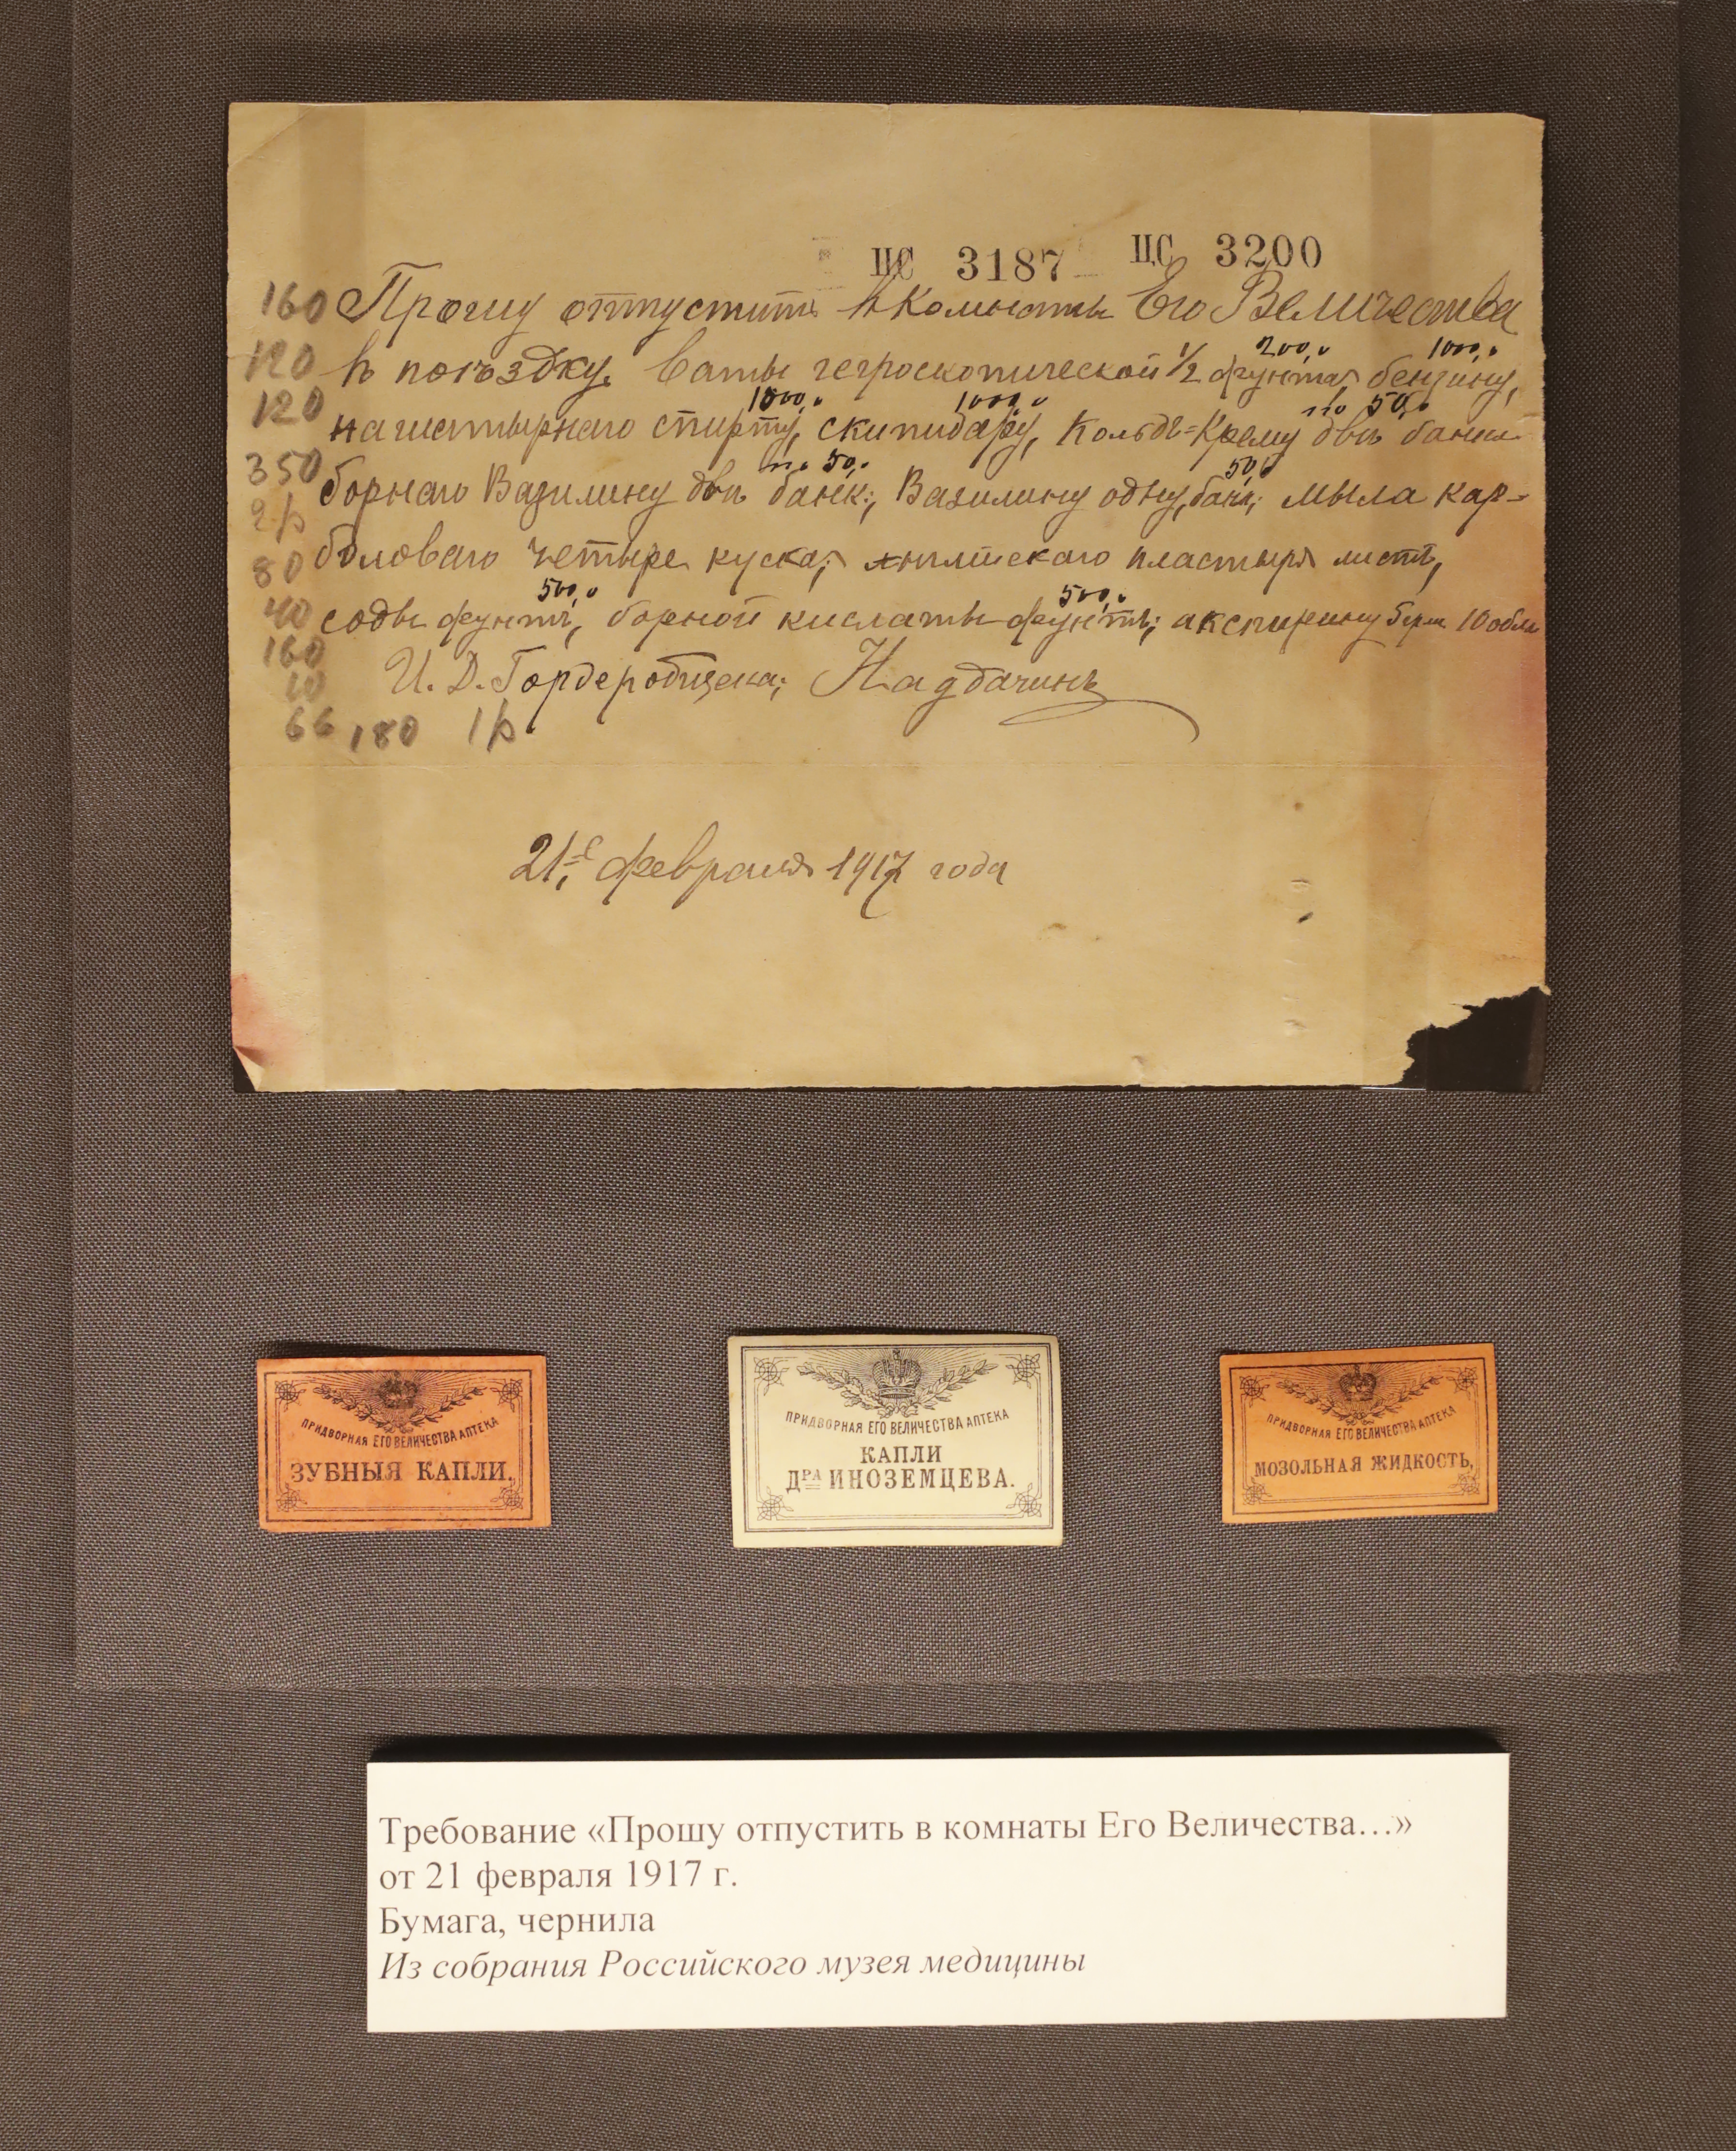 ЦС 3187 ЦС 3200
160 Прошу отпустить въ Комнаты Его Величества
120 въ поѣздку. Ваты гегроскопической 1/2 фунта, 200,0 бензину, 1000,0
120 нашатырнаго спирту, 1000,0 скипидару, 1000,0 Кольдъ-Крему двѣ банки по 50,0
350 борнаго Вазилину двѣ банк; по 50,0 Вазилину одну банк; 50,0 мыла кар-
2р боловаго четыре куска; англійскаго пластыря листъ,
80
40 соды фунтъ, 500,0 борной кислаты фунтъ; 500,0 аспирину 10 обла
160
10 И. Д. Гардеробщека;
66 180 1р
21го февраля 1917 года
ПРИДВОРНАЯ ЕГО ВЕЛИЧЕСТВА АПТЕКА
ЗУБНЫЯ КАПЛИ.
ПРИДВОРНАЯ ЕГО ВЕЛИЧЕСТВА АПТЕКА
КАПЛИ
ДРА ИНОЗЕМЦЕВА.
ПРИДВОРНАЯ ЕГО ВЕЛИЧЕСТВА АПТЕКА
МОЗОЛЬНАЯ ЖИДКОСТЬ,
Требование «Прошу отпустить в комнаты Его Величества…»
от 21 февраля 1917 г.
Бумага, чернила
Из собрания Российского музея медицины